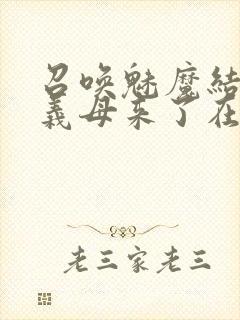 召唤魅魔结
義母来了在
老三家老三